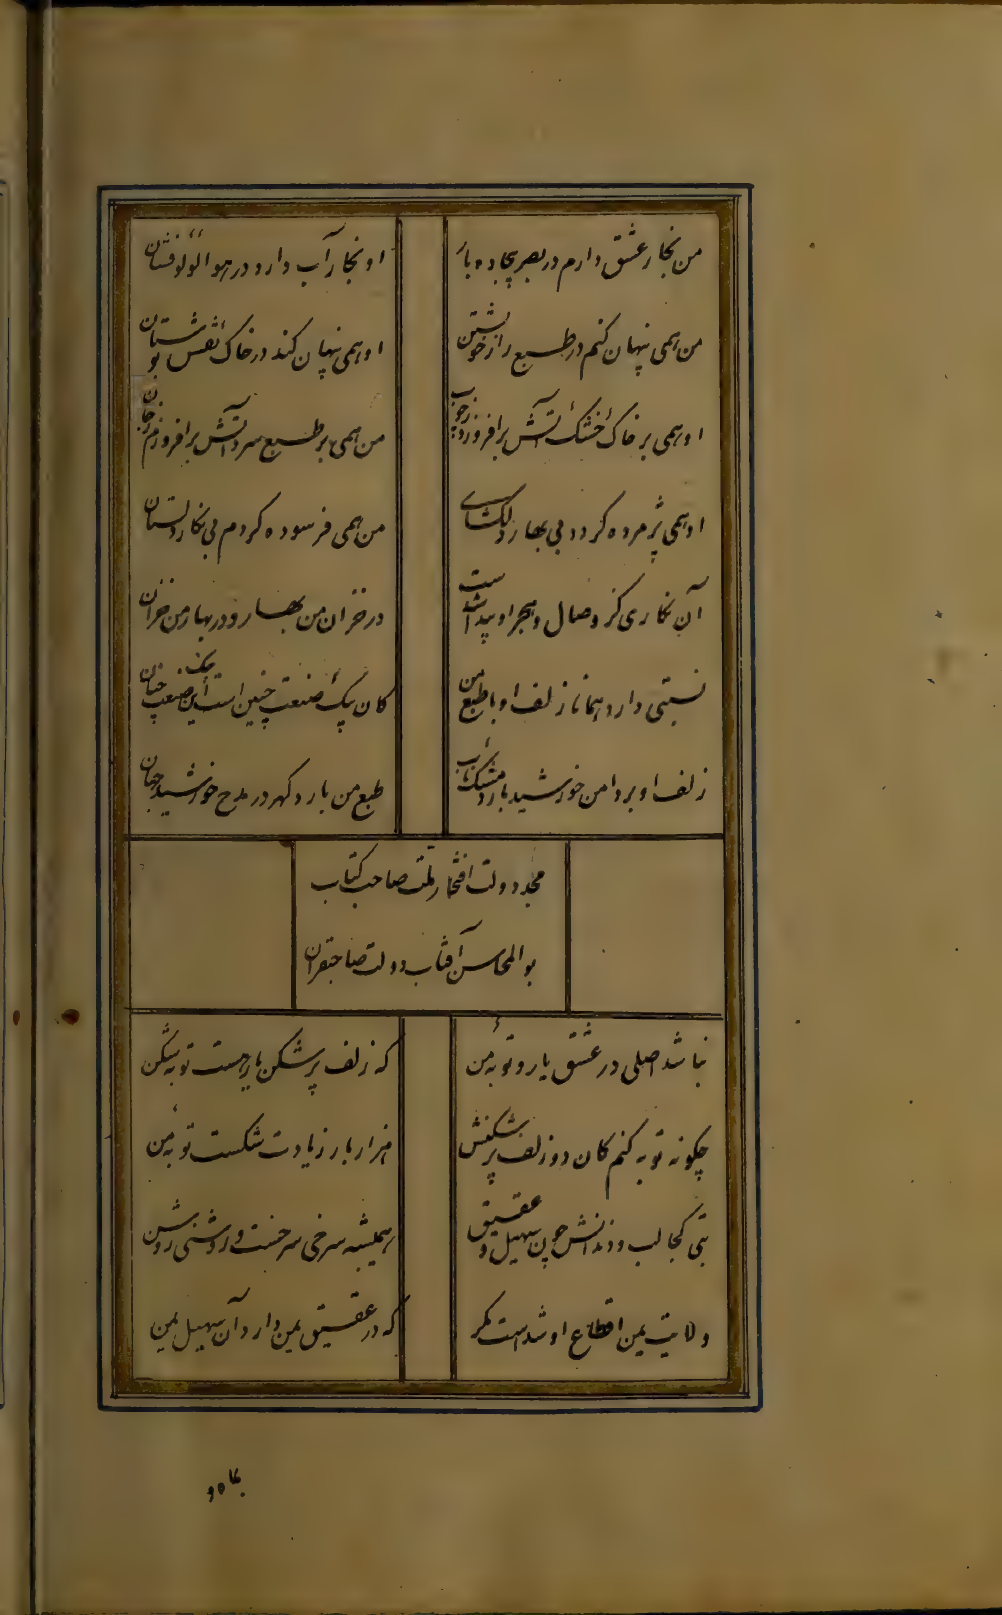 من بخار عشق دارم در بصر بیجاده بار
او بخار آب دارد در هوا لولوفشان
من همی پنهان کنم در طبع راز خویشتن
او همی پنهان کند در خاک نقش بوستان
او همی بر خاک خشک آتش برافروزد ز چوب
من همی بر طبع سرد آتش برافروزم ز جان
او همی پژمرده گردد بی بهار دلگشای
من همی فرسوده گردم بی نگار دلستان
آن نگاری کز وصال و هجر او پیدا شدست
در خزان من بهار و در بهار من خزان
نسبتی دارد همانا زلف او با طبع من
کان یک صنعت چنین است این یک صنعت چنان
زلف او بر دامن خورشید بارد مشک ناب
طبع من بارد گهر در مدح خورشید جهان
مجد دولت افتخار ملت صاحب کتاب
بوالمحاسن آفتاب دولت صاحبقران
نباشد اصلی در عشق یار و توبه من
که زلف پرشکن یار هست توبه شکن
چگونه توبه کنم کان دو زلف پرشکنش
هزار بار زیادت شکست توبه من
بتی کجا لب و دندانش چون سهیل و عقیق
همیشه سرخی سرخست و روشنی روشن
ولایت یمن اقطاع او شدست مگر
که در عقیق یمن دارد آن سهیل یمن